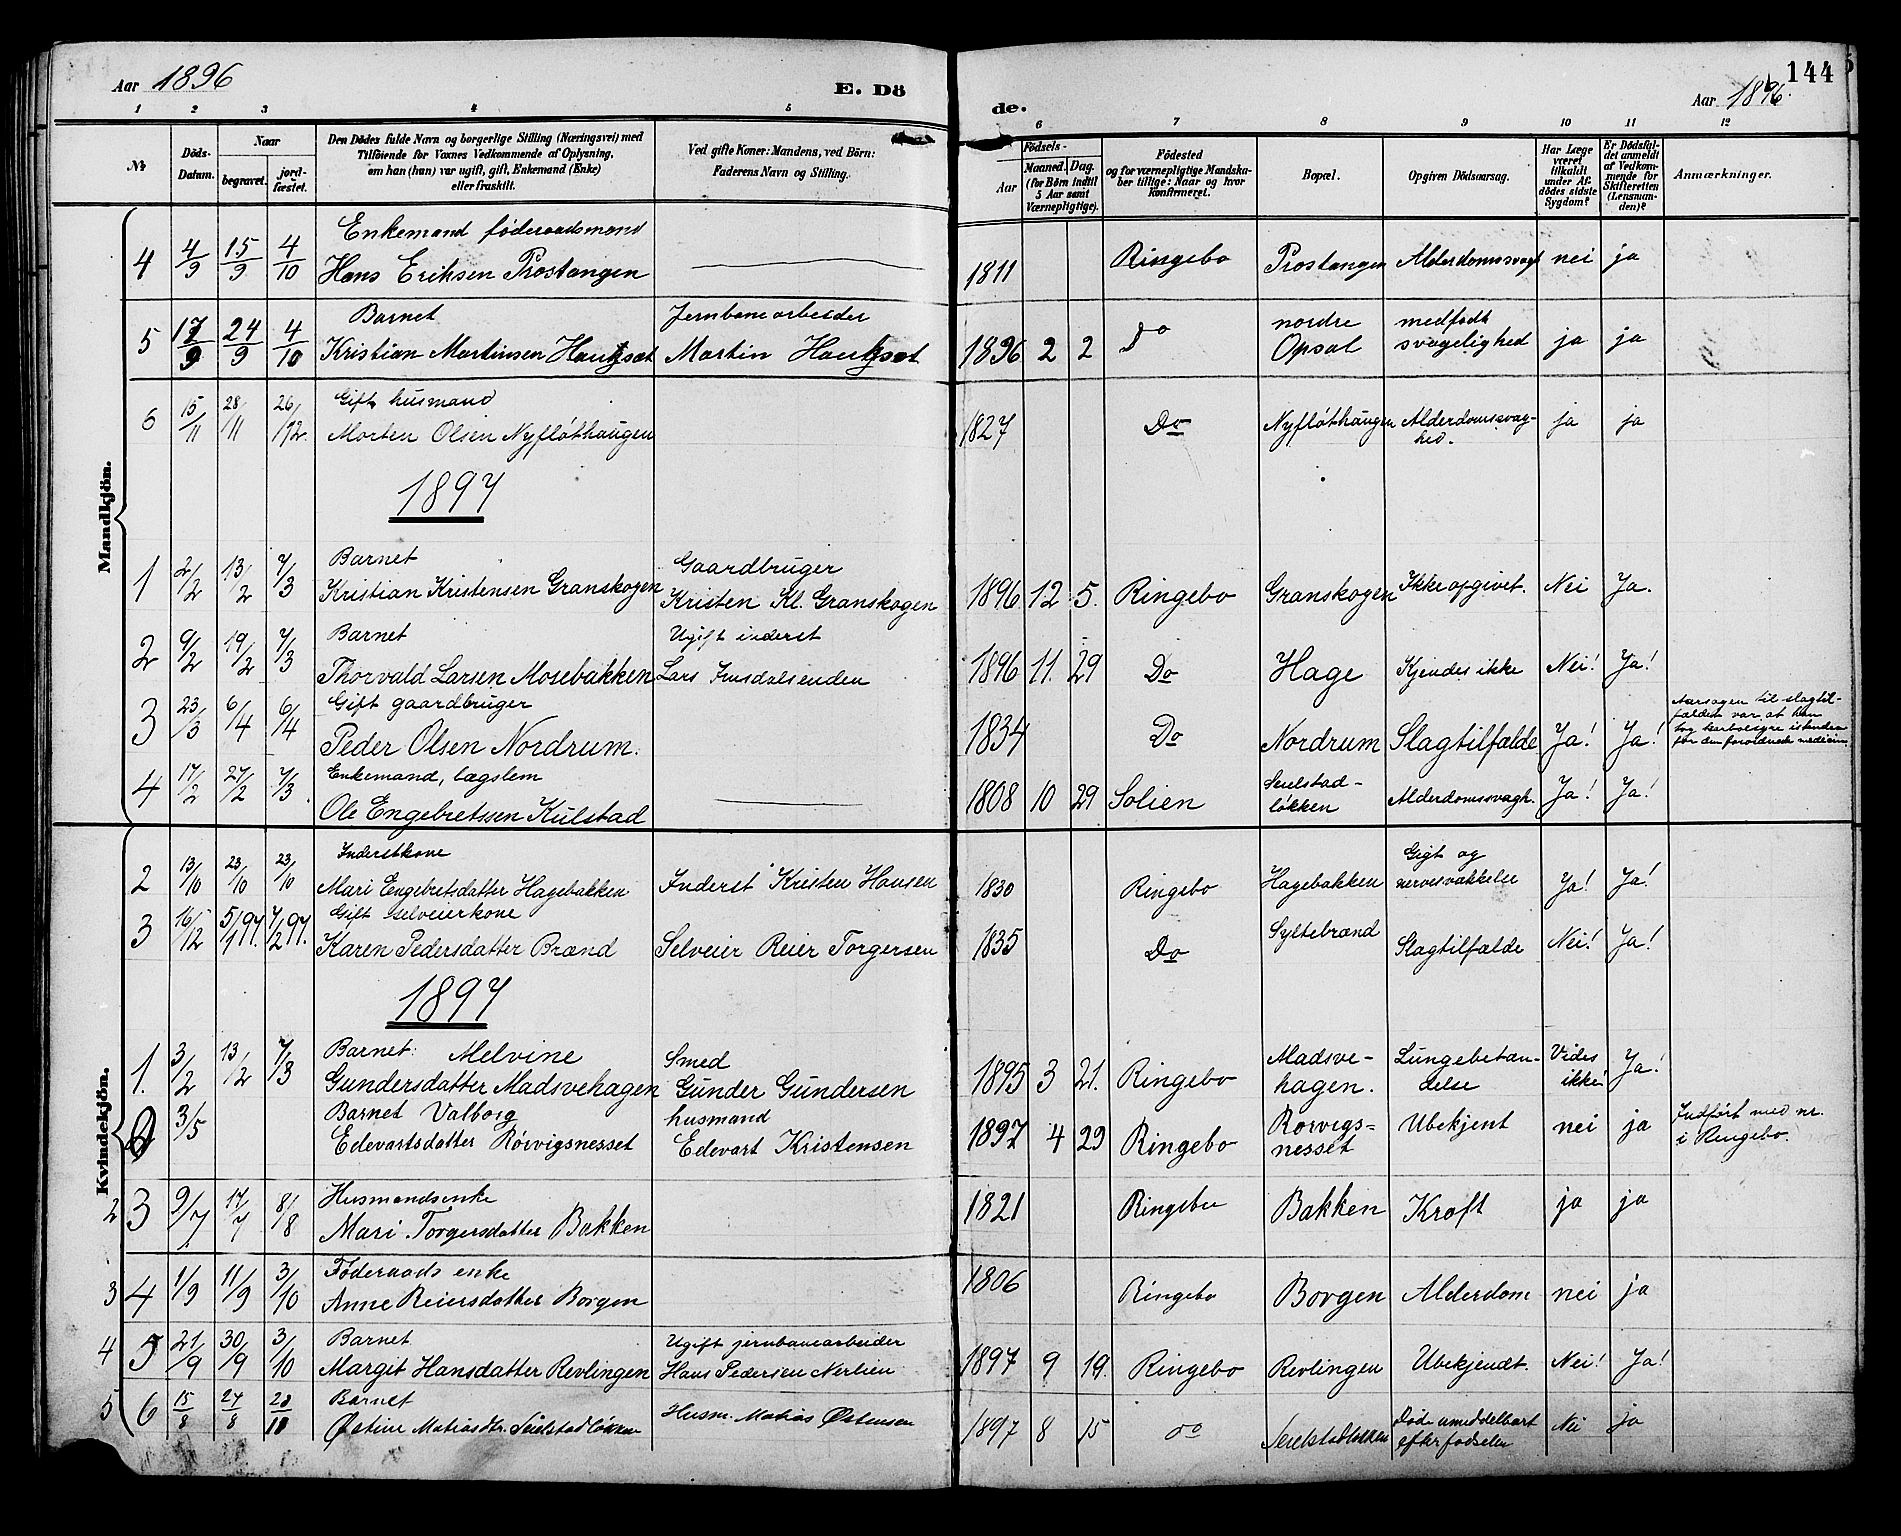 Aar 1896
E. Dö
de.
Aar 1896.
144
1 2 3 4 5 6 7 8 9 10 11 12
No
Döds-Datum.
Naar
begravet.
jordfæstet.
Den Dödes fulde Navn og borgerlige Stilling (Næringsvei) med
Tilföiende for Voxnes Vedkommende af Oplysning,
om han (hun) var ugift, gift, Enkemand (Enke)
eller fraskilt.
Ved gifte Koner: Mandens, ved Börn:
Faderens Navn og Stilling.
Födsels-
Aar
Maaned.
Dag.
(for Börn indtil
5 Aar samt
Værnepligtige).
Födested
og for værnepligtige Mandska-
ber tillige: Naar og hvor
Konfirmeret.
Bopæl.
Opgiven Dödsaarsag.
Har Læge
været
tilkaldt
under Af-
dödes sidste
Sygdom?
Er Dödsfal-
det anmeldt
af Vedkom-
mende for
Skifteretten
(Lensman-
den)?
Anmærkninger.
Mandkjön.
Enkemand föderaadsmand
4 4/9 15/9 4/10 Hans Eriksen Prostangen 1811 Ringebo Prostangen Alderdomssvagh nei ja
Barnet Jernbanearbeider nordre medfødt
5 17/9 24/9 4/10 Kristian Martinsen Haugsæt Martin Haugsæt 1896 2 2 Do Opsal svagelighed ja ja
Gift husmand
6 15/11 28/11 26/12. Morten Olsen Nyfløthaugen 1827 Do Nyfløthaugen Alderdomssvag-
hed. ja ja
1897
Barnet Gaardbruger
1 2/2 13/2 7/3 Kristian Kristensen Granskogen Kristen Kl. Granskogen 1896 12 5. Ringebo Granskogen Ikke opgivet. Nei Ja.
Barnet Ugift inderst
2 9/2 19/2 7/3 Thorvald Larsen Mosebakken Lars 1896 11. 29 Do Hage Kjendes ikke Nei! Ja!
Gift gaardbruger
3 23/3 6/4 6/4 Peder Olsen Nordrum. 1834 Do Nordrum Slagtilfælde Ja! Ja!
Aarsagen til slagtil-
fældet var at han
tog karbolsyre istedea
for den forordnede medicin.
Enkemand, lægslem Seielstad-
4 17/2 27/2 7/3. Ole Engebretssen Kulstad 1808 10 29 Solien løkken Alderdomssvagh. Ja! Ja!
Kvindekjön.
Inderstkone Gigt og
2 13/10 23/10 23/10 Mari Engebretsdatter Hagebakken Inderst Kristen Hansen 1830 Ringebo Hagebakken nervesvækkelse Ja! Ja!
Gift selveierkone
3 16/12 5/1 97. 7/2 97. Karen Pedersdatter Brænd Selveier Reier Torgersen 1835 Do Syltebrænd Slagtilfælde Nei! Ja!
1897
Barnet: Melvine Smed Madsve- Lungebetæn- Vides
1. 3/2 13/2 7/3 Gundersdatter Madsvehagen Gunder Gundersen 1895 3 21. Ringebo hagen. delse ikke Ja!
Barnet Valborg husmand Rørvigs= Indført med nr.
2 3/5 Edevartsdatter Rørvigsnesset Edevart Kristensen 1897 4 29 Ringebo nesset Ubekjent nei ja i Ringebo.
Husmandsenke
2 3 9/7 17/7 8/8 Mari Torgersdatter Bakken 1821 Ringebu Bakken Kræft ja ja
Føderaads enke
3 4 1/9 11/9 3/10 Anne Reiersdatter Borgen 1806 Ringebo Borgen Alderdom nei ja
Barnet Ugift jernbanearbeider
4 5 21/9 30/9 3/10 Margit Hansdatter Revlingen Hans Pedersen Nerlien 1897 9 19. Ringebo Revlingen Ubekjendt. Nei! Ja!
Barnet Døde umiddelbart
5 6 15/8 24/8 Østine Matiasdtr. Seielstadløkken Husm. Matias Østensen 1897 8 15 do Seielstadløkken efter fødselen Nei ja